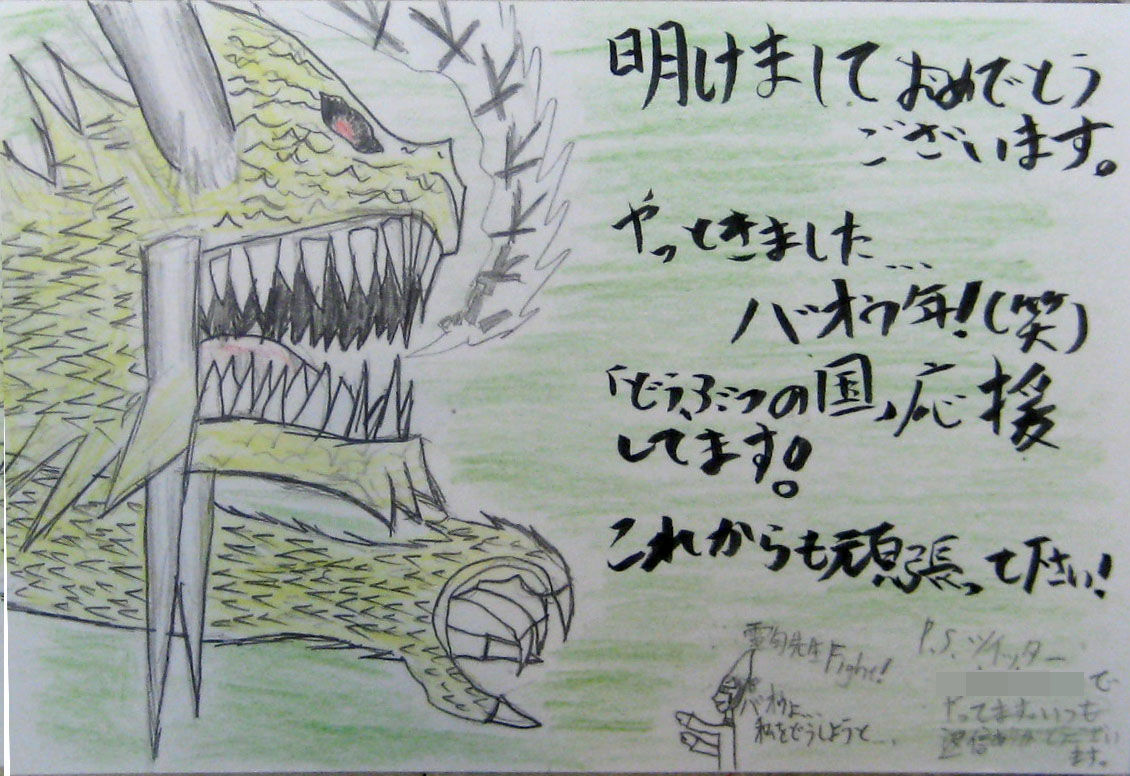 明けまして おめでとう
ございます。
やってきました…
バオウ年!(笑)
「どうぶつの国」応援
してます!
これからも頑張って下さい!
雷句先生Fight!
バオウよ…
私をどうしようと…、
P.S.ツイッター
で
やってます。いつも
返信ありがとうござい
ます。